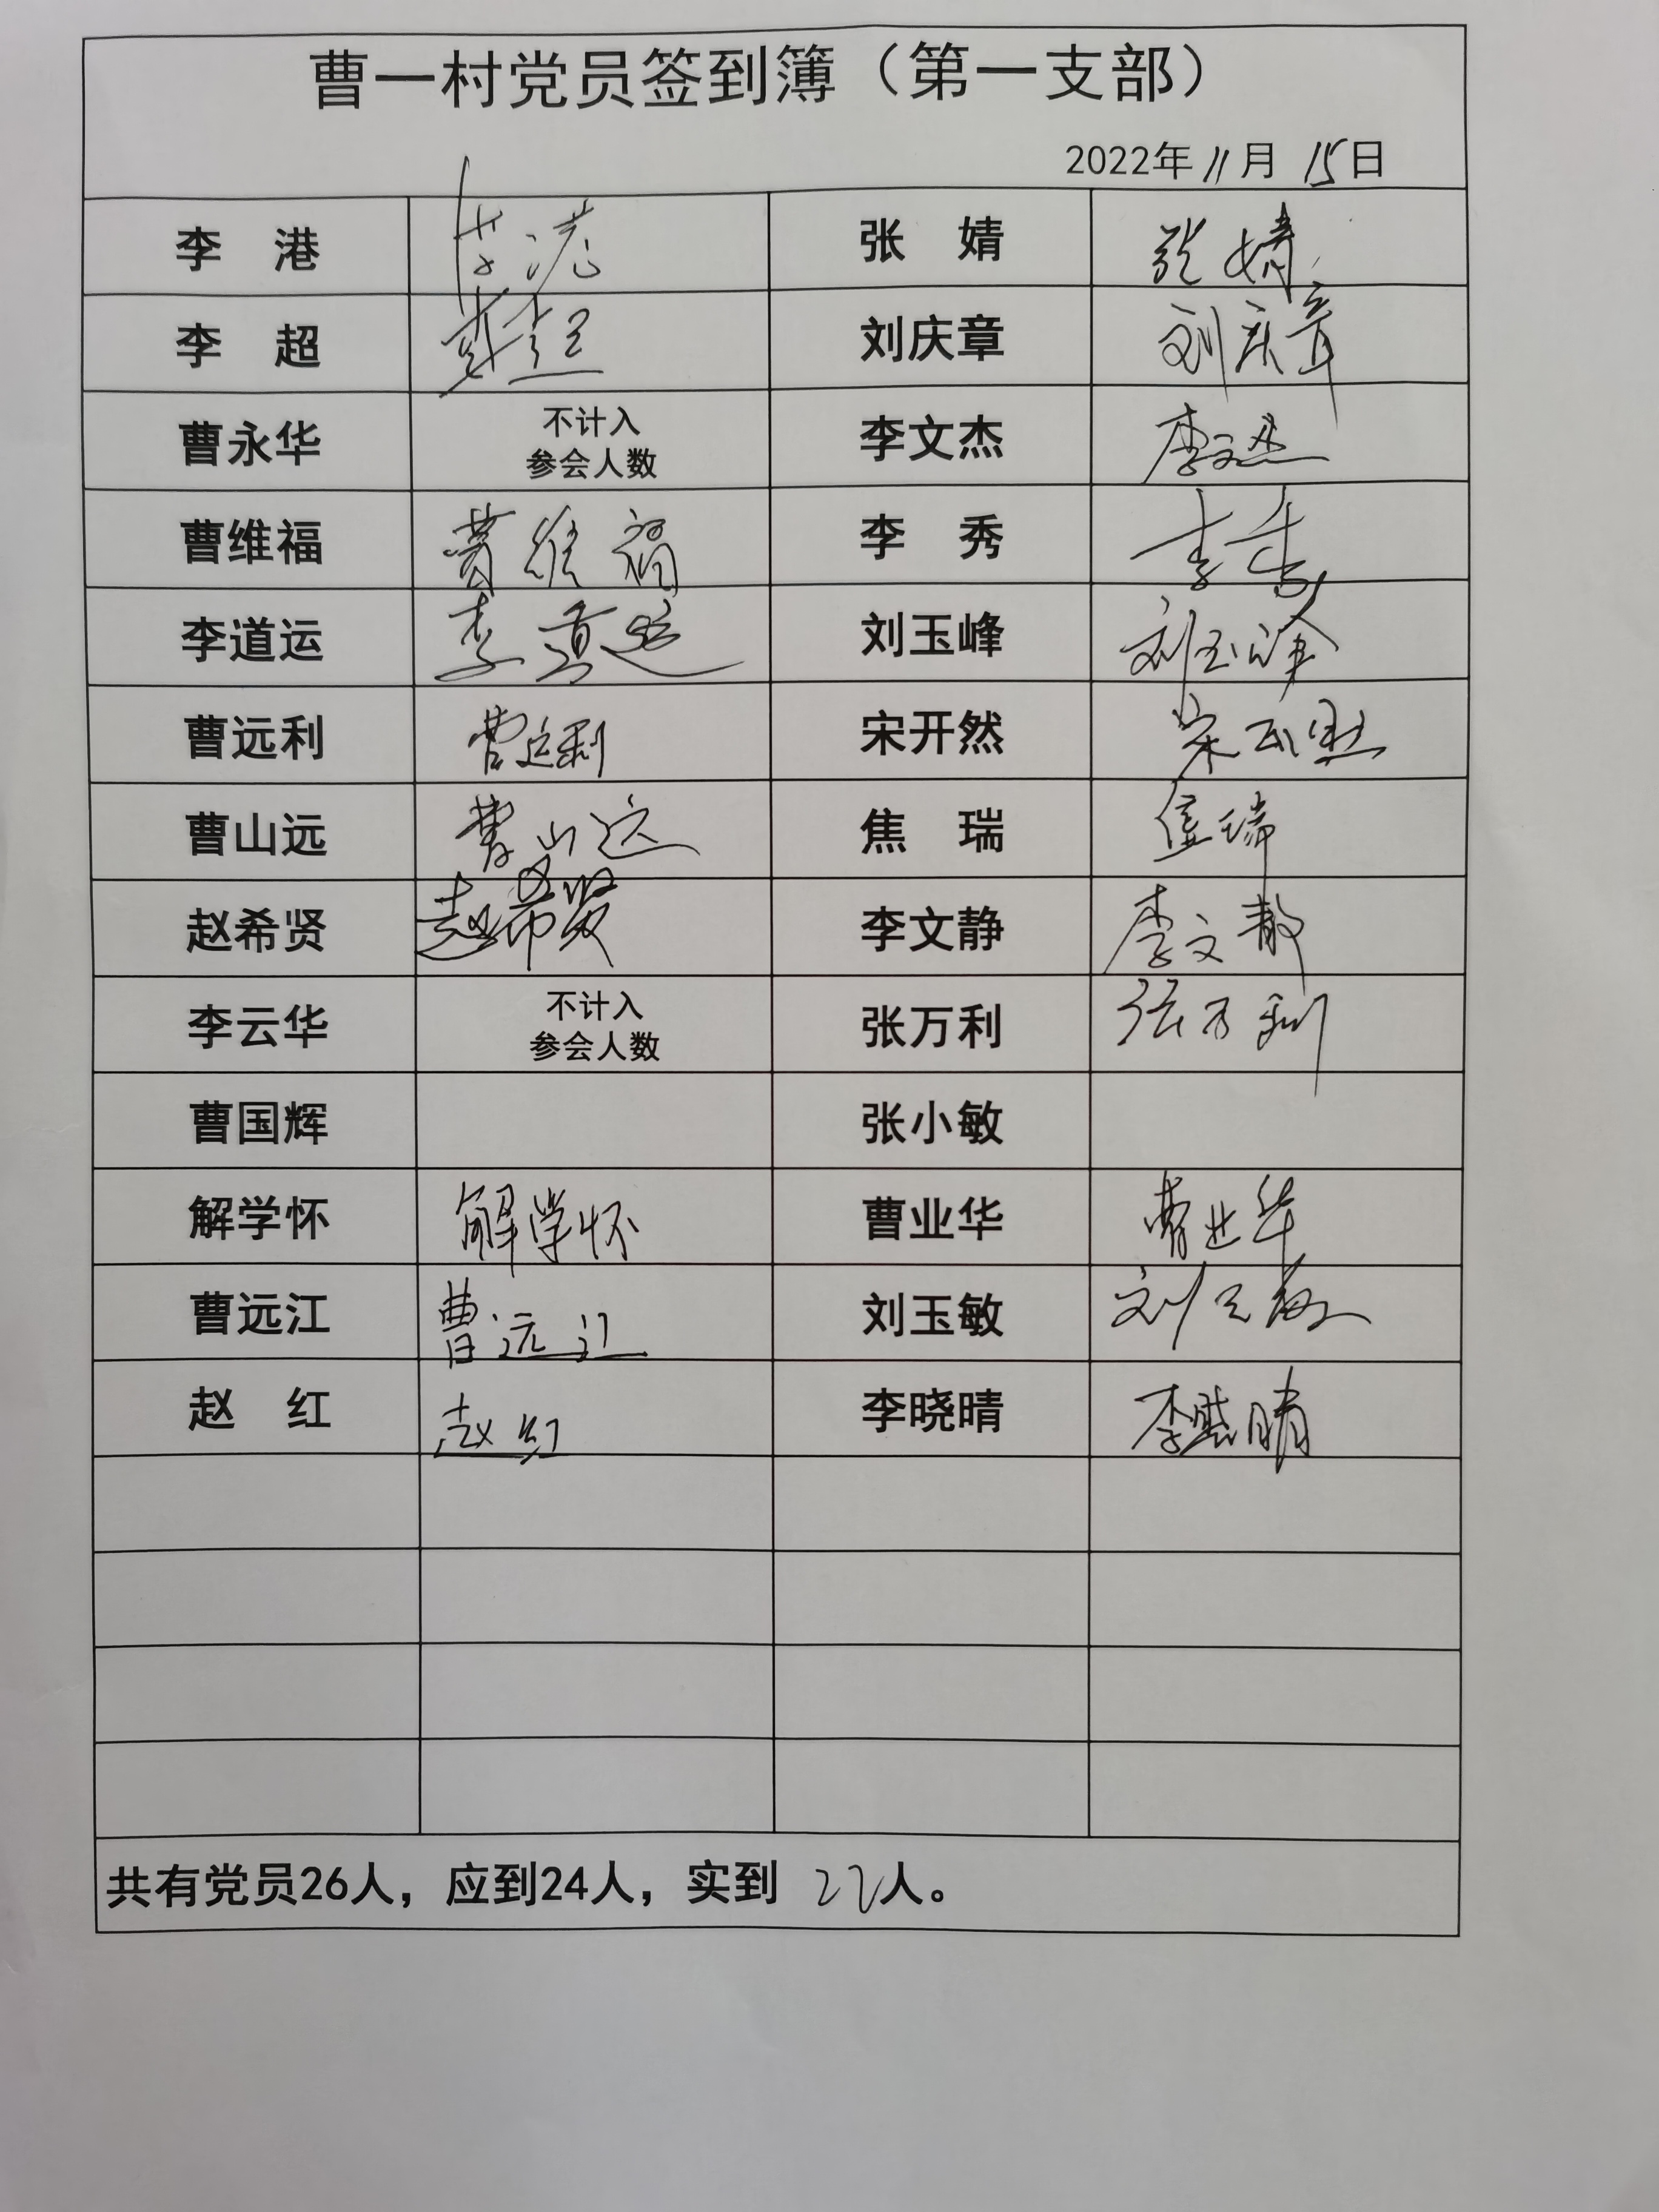 曹一村党员签到簿（第一支部）
2022年11月15日
李 港 李港 张 婧 张婧
李 超 李超 刘庆章 刘庆章
曹永华 不计入 李文杰 李文杰
参会人数
曹维福 曹维福 李 秀 李秀
李道运 李道运 刘玉峰 刘玉峰
曹远利 曹远利 宋开然 宋开然
曹山远 曹山远 焦 瑞 焦瑞
赵希贤 赵希贤 李文静 李文静
李云华 不计入 张万利 张万利
参会人数
曹国辉 张小敏
解学怀 解学怀 曹业华 曹业华
曹远江 曹远江 刘玉敏 刘玉敏
赵 红 赵红 李晓晴 李晓晴
共有党员26人，应到24人，实到 22人。